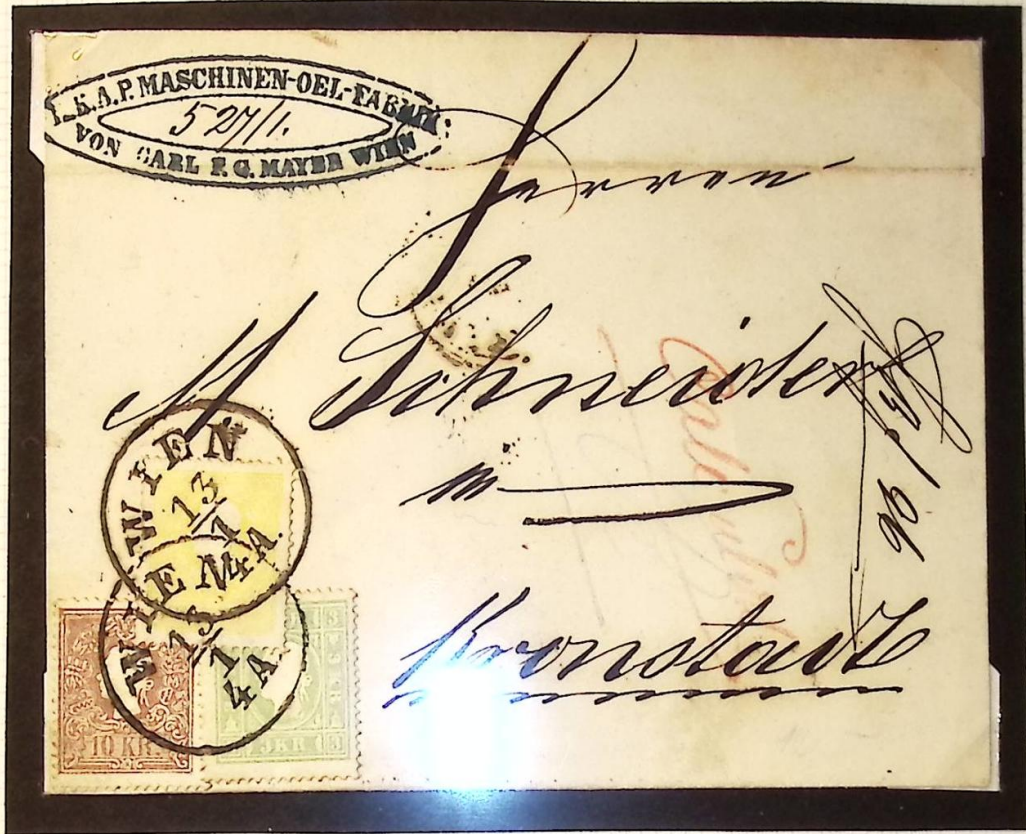 K.A.P. MASCHINEN-OEL-FABRIK
527/1.
VON CARL F. G. MAYER WIEN
Herren
M Schneider
in
Kronstadt
WIEN
13/1
4A.
WIEN
13/1
4A
10 KR.
3 KR
3